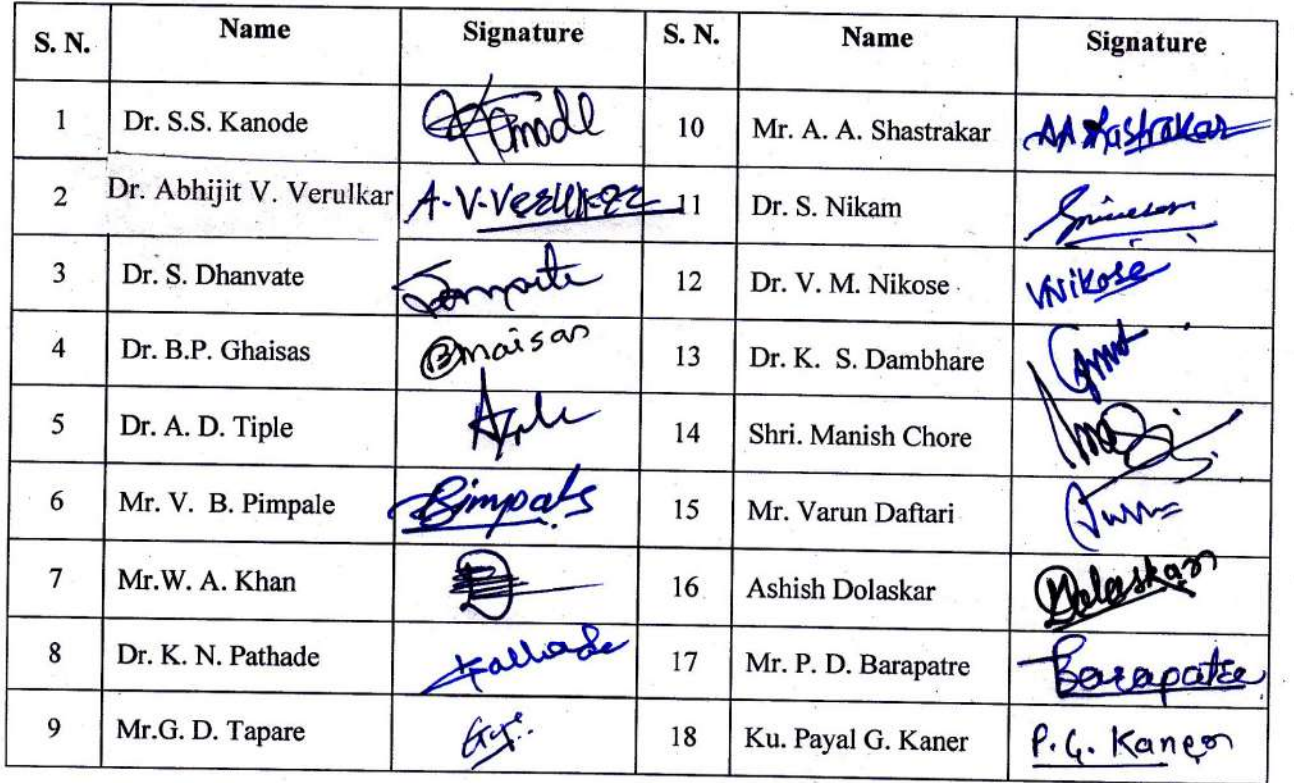 S. N. Name Signature S. N. Name Signature
1 Dr. S.S. Kanode Kanode 10 Mr. A. A. Shastrakar AAShastrakar
2 Dr. Abhijit V. Verulkar A.V.Verulkar 11 Dr. S. Nikam
3 Dr. S. Dhanvate 12 Dr. V. M. Nikose VNikose
4 Dr. B.P. Ghaisas 13 Dr. K. S. Dambhare
5 Dr. A. D. Tiple 14 Shri. Manish Chore
6 Mr. V. B. Pimpale 15 Mr. Varun Daftari
7 Mr.W. A. Khan 16 Ashish Dolaskar Dolaskar
8 Dr. K. N. Pathade 17 Mr. P. D. Barapatre Barapatre
9 Mr.G. D. Tapare 18 Ku. Payal G. Kaner P.G. Kaner